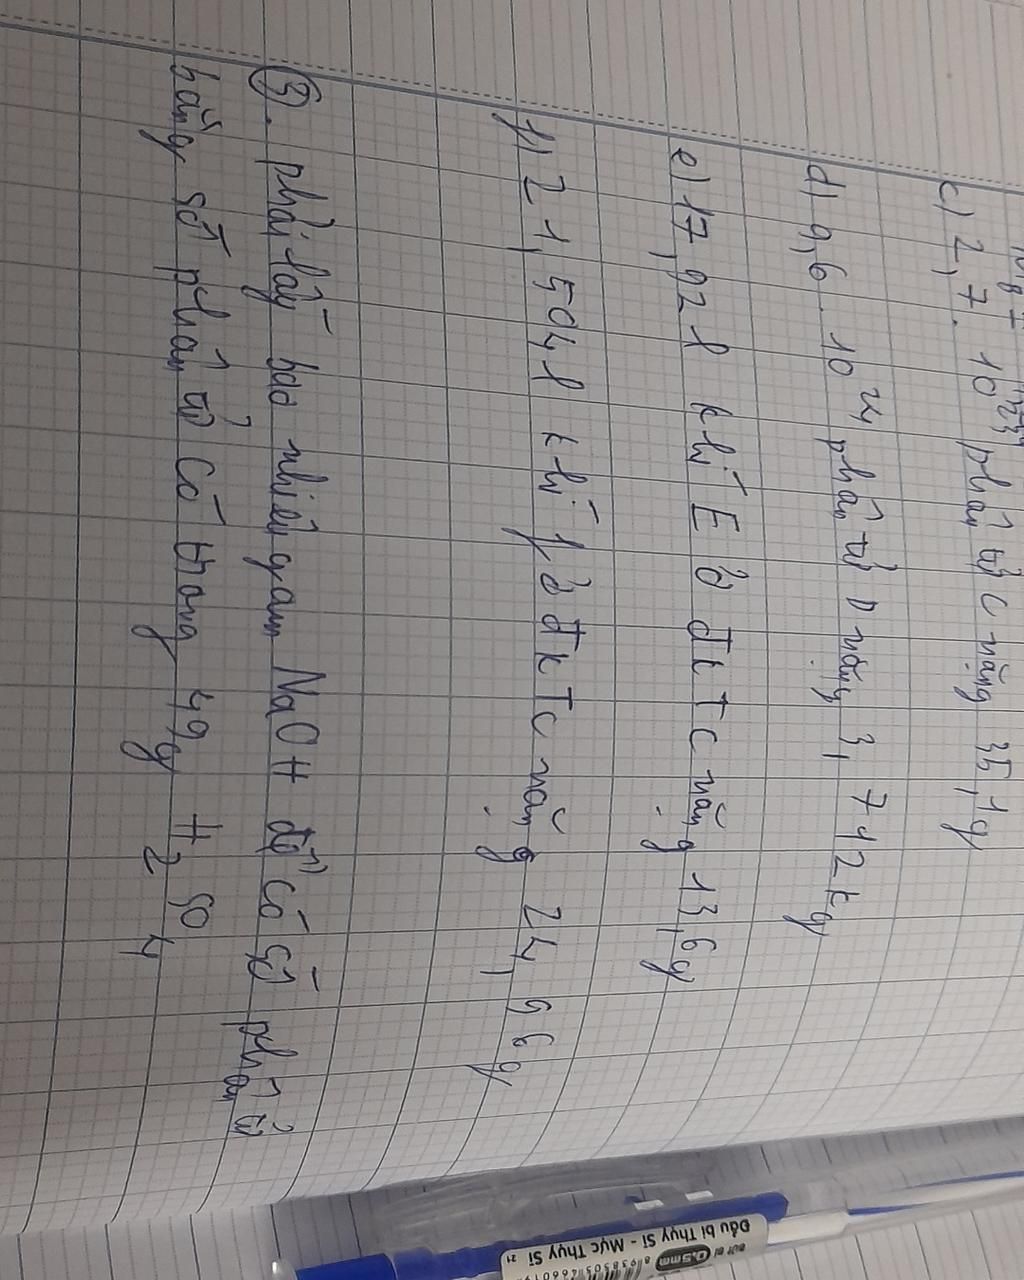 c) 2,7. 10²³ phân tử C nặng 35,1g
d) 9,6. 10²⁴ phân tử D nặng 3,712kg
e) 17,92 l khí E ở đktc nặng 13,6g
f) 21,504 l khí f ở đktc nặng 24,96g
③. phải lấy bao nhiêu gam NaOH để có số phân tử
bằng số phân tử có trong 49g H₂SO₄
Đầu bi Thụy Sĩ - Mực Thụy Sĩ
BÚT BI 0.5mm